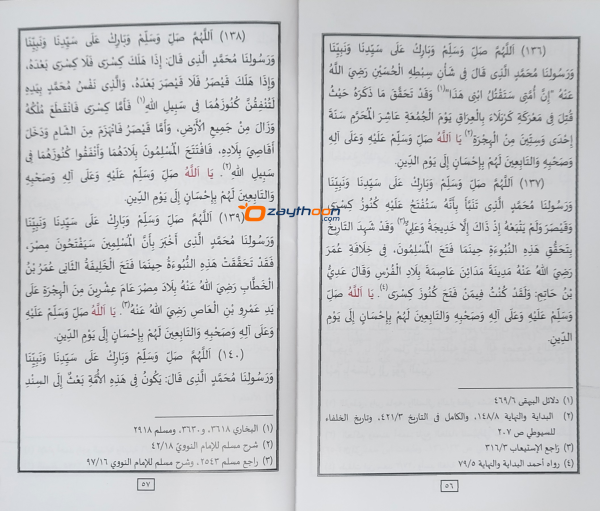 (١٣٦) اَللّٰهُمَّ صَلِّ وَسَلِّمْ وَبَارِكْ عَلَى سَيِّدِنَا وَنَبِيِّنَا
وَرَسُولِنَا مُحَمَّدٍ الَّذِى قَالَ فِى شَأْنِ سِبْطِهِ الْحُسَيْنِ رَضِىَ اللّٰهُ
عَنْهُ "إِنَّ أُمَّتِى سَتَقْتُلُ ابْنِى هَذَا"(١) وَقَدْ تَحَقَّقَ مَا ذَكَرَهُ حَيْثُ
قُتِلَ فِى مَعْرَكَةِ كَرْبَلَاءَ بِالْعِرَاقِ يَوْمَ الْجُمُعَةِ عَاشِرَ الْمُحَرَّمِ سَنَةَ
إِحْدَى وَسِتِّينَ مِنَ الْهِجْرَةِ(٢) يَا اَللّٰهُ صَلِّ وَسَلِّمْ عَلَيْهِ وَعَلَى آلِهِ
وَصَحْبِهِ وَالتَّابِعِينَ لَهُمْ بِإِحْسَانٍ إِلَى يَوْمِ الدِّينِ.
(١٣٧) اَللّٰهُمَّ صَلِّ وَسَلِّمْ وَبَارِكْ عَلَى سَيِّدِنَا وَنَبِيِّنَا
وَرَسُولِنَا مُحَمَّدٍ الَّذِى تَنَبَّأَ بِأَنَّهُ سَتُفْتَحُ عَلَيْهِ كُنُوزُ كِسْرَى
وَقَيْصَرَ وَلَمْ يَتْبَعْهُ إِذْ ذَاكَ إِلَّا خَدِيجَةُ وَعَلِيٌّ(٣) وَقَدْ شَهِدَ التَّارِيخُ
بِتَحَقُّقِ هَذِهِ النُّبُوءَةِ حِينَمَا فَتَحَ الْمُسْلِمُونَ، فِى خِلَافَةِ عُمَرَ
رَضِىَ اللّٰهُ عَنْهُ مَدِينَةَ مَدَائِنَ عَاصِمَةَ بِلَادِ الْفُرْسِ وَقَالَ عَدِيُّ
بْنُ حَاتِمٍ: وَلَقَدْ كُنْتُ فِيمَنْ فَتَحَ كُنُوزَ كِسْرَى(٤). يَا اَللّٰهُ صَلِّ
وَسَلِّمْ عَلَيْهِ وَعَلَى آلِهِ وَصَحْبِهِ وَالتَّابِعِينَ لَهُمْ بِإِحْسَانٍ إِلَى يَوْمِ
الدِّينِ.
(١) دلائل البيهقى ٤٦٩/٦
(٢) البداية والنهاية ١٤٨/٨، والكامل فى التاريخ ٤٢١/٣، وتاريخ الخلفاء
للسيوطي ص ٢٠٧
(٣) راجع الإستيعاب ٣١٦/٣
(٤) رواه أحمد البداية والنهاية ٧٩/٥
٥٦
(١٣٨) اَللّٰهُمَّ صَلِّ وَسَلِّمْ وَبَارِكْ عَلَى سَيِّدِنَا وَنَبِيِّنَا
وَرَسُولِنَا مُحَمَّدٍ الَّذِى قَالَ: إِذَا هَلَكَ كِسْرَى فَلَا كِسْرَى بَعْدَهُ،
وَإِذَا هَلَكَ قَيْصَرُ فَلَا قَيْصَرَ بَعْدَهُ، وَالَّذِى نَفْسُ مُحَمَّدٍ بِيَدِهِ
لَتُنْفِقُنَّ كُنُوزَهُمَا فِى سَبِيلِ اللّٰهِ(١) فَأَمَّا كِسْرَى فَانْقَطَعَ مُلْكُهُ
وَزَالَ مِنْ جَمِيعِ الْأَرْضِ، وَأَمَّا قَيْصَرُ فَانْهَزَمَ مِنَ الشَّامِ وَدَخَلَ
أَقَاصِيَ بِلَادِهِ، فَافْتَتَحَ الْمُسْلِمُونَ بِلَادَهُمَا وَأَنْفَقُوا كُنُوزَهُمَا فِى
سَبِيلِ اللّٰهِ(٢). يَا اَللّٰهُ صَلِّ وَسَلِّمْ عَلَيْهِ وَعَلَى آلِهِ وَصَحْبِهِ
وَالتَّابِعِينَ لَهُمْ بِإِحْسَانٍ إِلَى يَوْمِ الدِّينِ.
(١٣٩) اَللّٰهُمَّ صَلِّ وَسَلِّمْ وَبَارِكْ عَلَى سَيِّدِنَا وَنَبِيِّنَا
وَرَسُولِنَا مُحَمَّدٍ الَّذِى أَخْبَرَ بِأَنَّ الْمُسْلِمِينَ سَيَفْتَحُونَ مِصْرَ،
فَقَدْ تَحَقَّقَتْ هَذِهِ النُّبُوءَةُ حِينَمَا فَتَحَ الْخَلِيفَةُ الثَّانِى عُمَرُ بْنُ
الْخَطَّابِ رَضِىَ اللّٰهُ عَنْهُ بِلَادَ مِصْرَ عَامَ عِشْرِينَ مِنَ الْهِجْرَةِ عَلَى
يَدِ عَمْرِو بْنِ الْعَاصِ رَضِىَ اللّٰهُ عَنْهُ(٣). يَا اَللّٰهُ صَلِّ وَسَلِّمْ عَلَيْهِ
وَعَلَى آلِهِ وَصَحْبِهِ وَالتَّابِعِينَ لَهُمْ بِإِحْسَانٍ إِلَى يَوْمِ الدِّينِ.
(١٤٠) اَللّٰهُمَّ صَلِّ وَسَلِّمْ وَبَارِكْ عَلَى سَيِّدِنَا وَنَبِيِّنَا
وَرَسُولِنَا مُحَمَّدٍ الَّذِى قَالَ: يَكُونُ فِى هَذِهِ الْأُمَّةِ بَعْثٌ إِلَى السِّنْدِ
(١) البخاري ٣٦١٨، و٣٦٣٠، ومسلم ٢٩١٨
(٢) شرح مسلم للإمام النوويّ ٤٢/١٨
(٣) راجع مسلم ٢٥٤٣، وشرح مسلم للإمام النووي ٩٧/١٦
٥٧
zaythoon.com